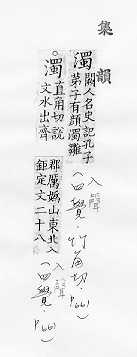 集韻
濁 闕人名史記孔子
弟子有顏濁鄒
入聲
(四覺·竹角切)
p.661
。濁 直角切說
文水出齊
郡厲嬀山東北入
鉅定文二十八
入聲
(四覺·
p.661